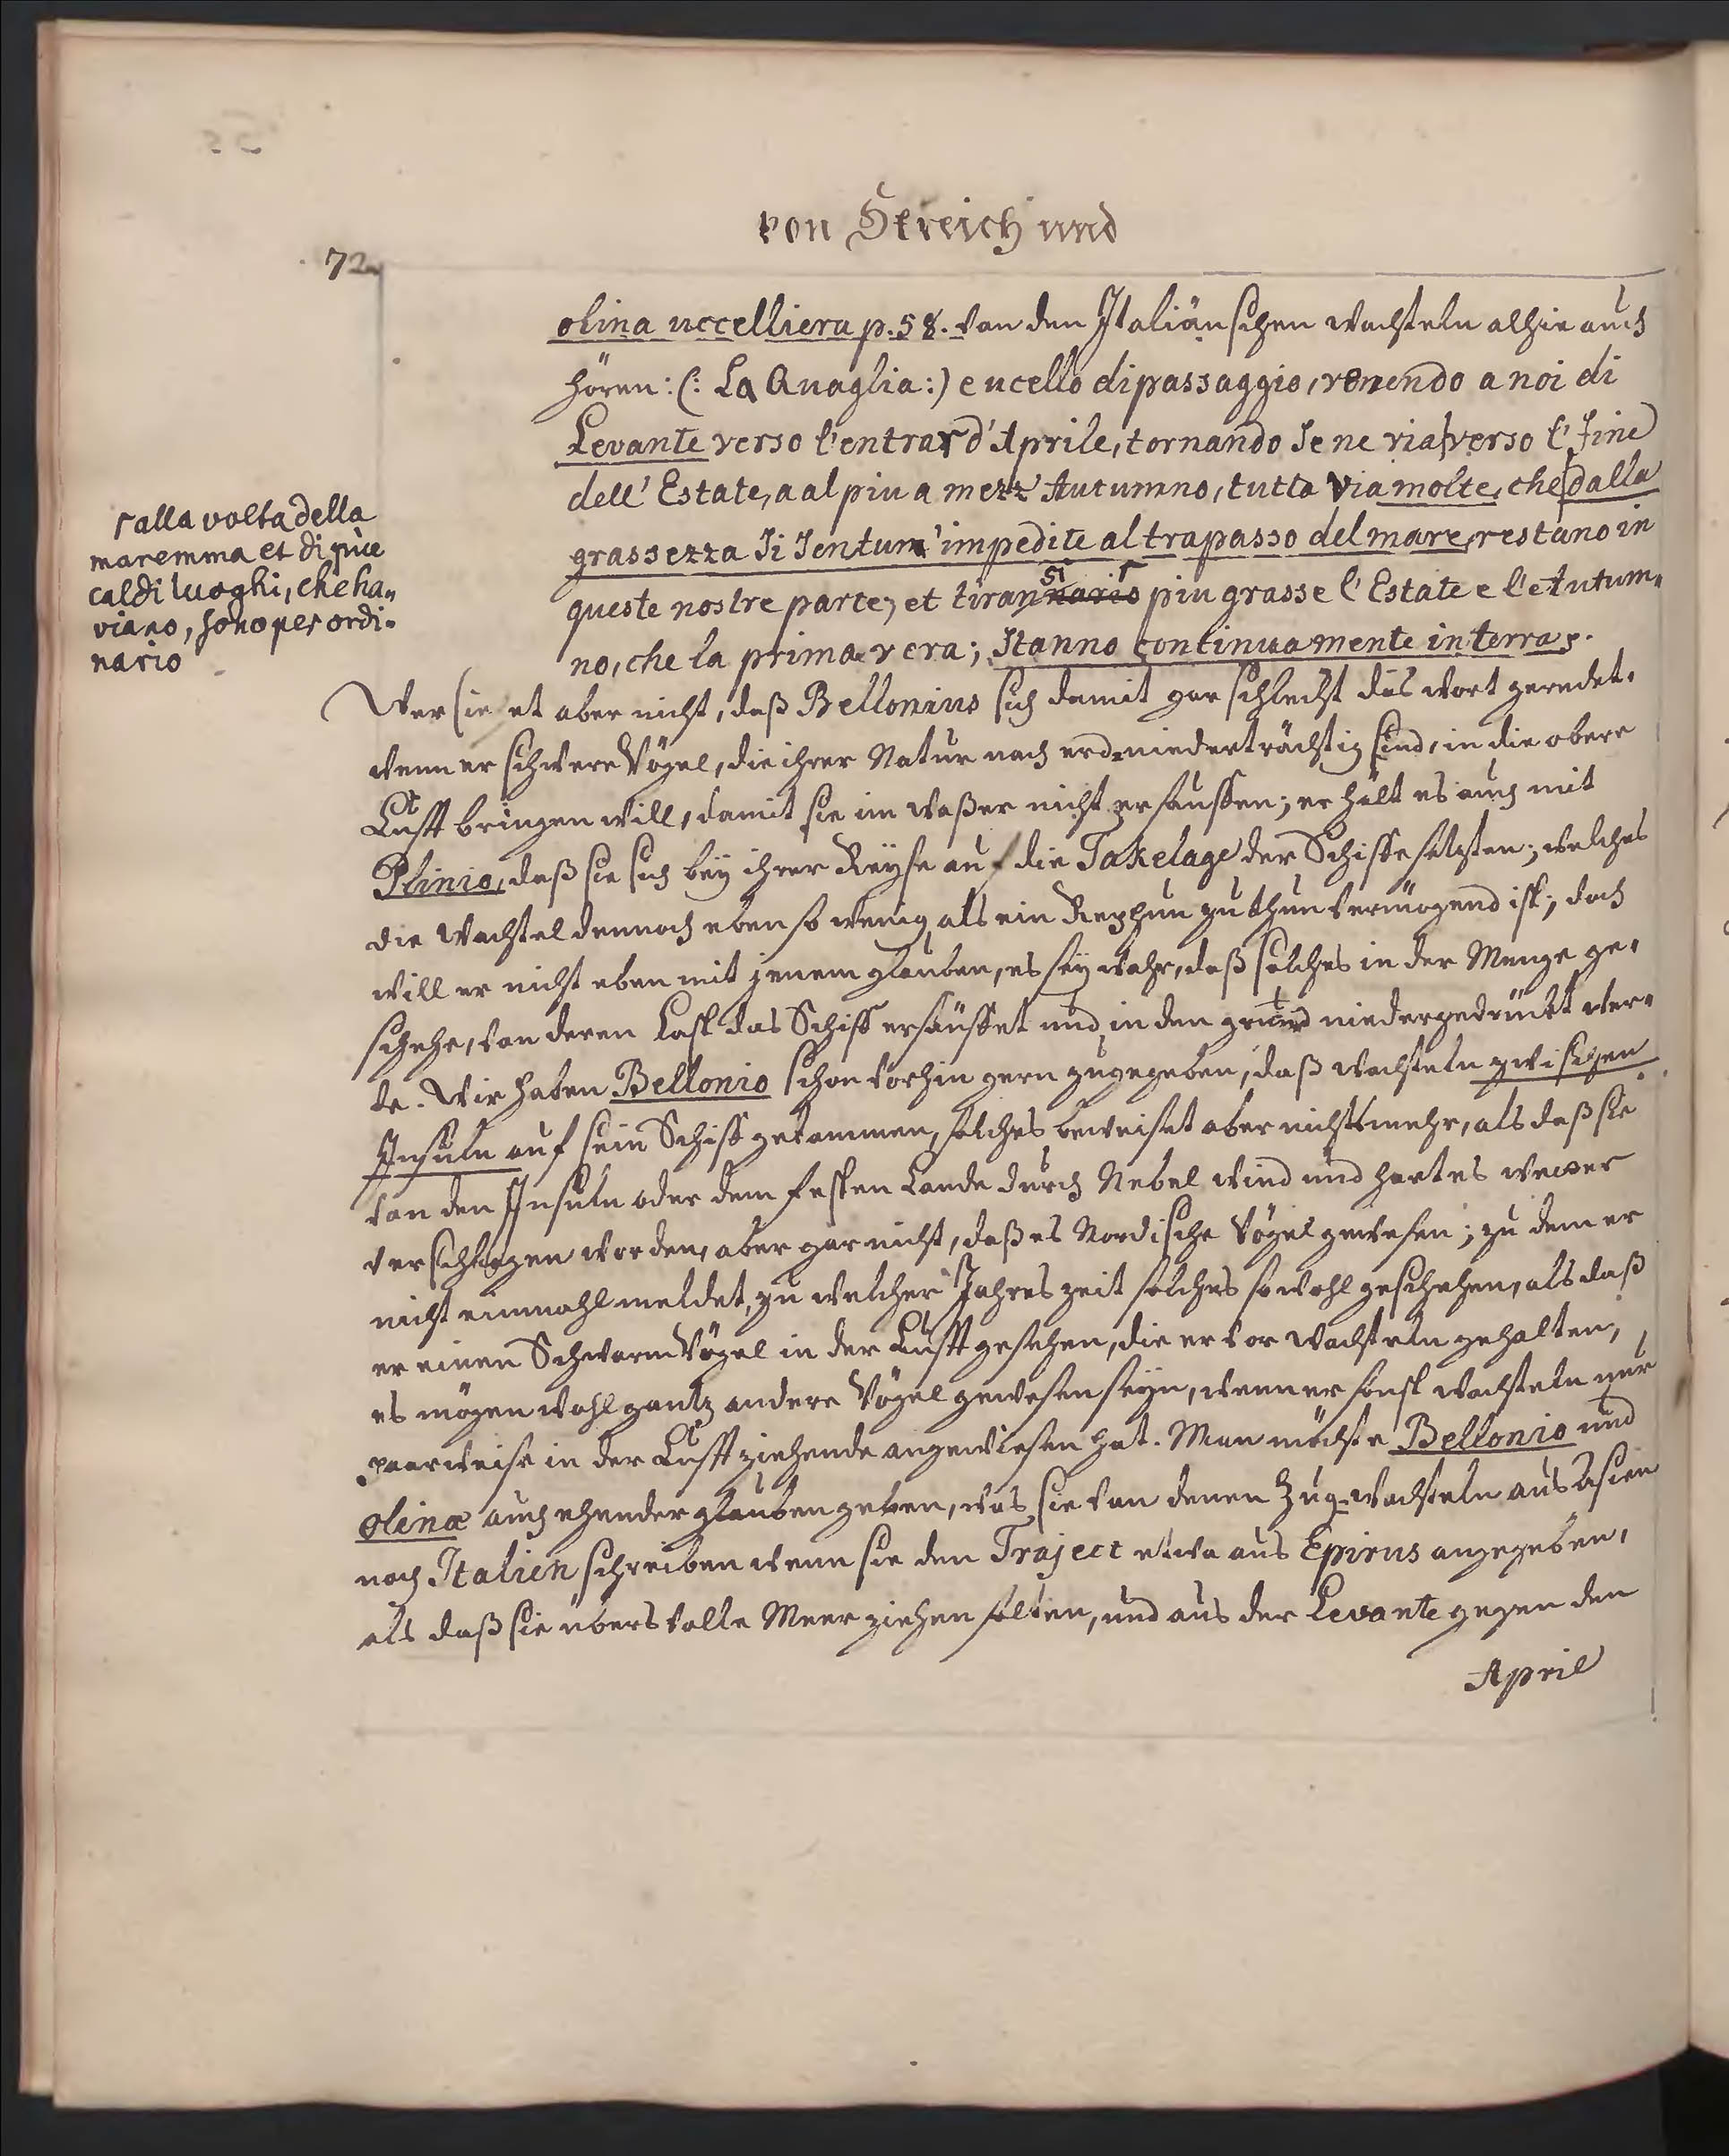 von Streich und
72.
olina uccelliera p. 58. von den Italiänschen Wachteln alhie auch
hören: (: La Quaglia :) e ucello di passaggio, venendo a noi di
Levante verso l'entrar d'Aprile, tornando se ne via verso l'fine
dell' Estate, a al piu a mezz' Autumno, tutta via molte, che dalla
grassezza si sentum' impedite al trapasso del mare, restano in
queste nostre parte, et tiran si nario piu grasse l'Estate e l'etutum„
no, che la prima vera; stanno continuamente in terra ꝛ.
ralla volta della
maremma et di piu
caldi luoghi, che ha„
viano, sono per ordi-
nario
Wer siehet aber nicht, daß Bellonius sich damit gar schlecht das wort geredet,
wenn er schwere Vögel, die ihrer Natur nach erd=niederträchtig sind, in die obere
Lufft bringen will, damit sie im waßer nicht ersauffen; er hält es auch mit
Plinio, daß sie sich bey ihrer Reyse auf die Takelage der Schiffe setzten; welches
die Wachtel dennoch eben so wenig als ein Rephun zu thun vermögend ist; doch
will er nicht eben mit jenem glauben, es sey wahr, daß solches in der Menge ge-
schehe, von deren Last das Schiff ersäuffet und in den grund niedergedrückt wer„
de. Wir haben Bellonio schon vorhin gern zugegeben, daß Wachteln zwischen
Insuln auf sein Schiff gekommen, solches beweiset aber nichts mehr, als daß sie
von den Insuln oder dem festen Lande durch Nebel wind und hartes wetter
verschlagen worden, aber gar nicht, daß es Nordische Vögel gewesen; zu dem er
nicht einmahl meldet, zu welcher Jahres zeit solches so wohl geschehen, als daß
er einen Schwarm Vögel in der Lufft gesehen, die er vor Wachteln gehalten;
es mögen wohl gantz andere Vögel gewesen seyn, wenn er sonst Wachteln nur
paarweise in der Lufft ziehende angewiesen hat. Man möchte Bellonio und
olinæ auch ehender glauben geben, was sie von denen Zug=Wachteln aus Asien
nach Italien schreiben wenn sie den Traject etwa aus Epirus angegeben,
als daß sie übers volle Meer ziehen solten, und aus der Levante gegen den
April